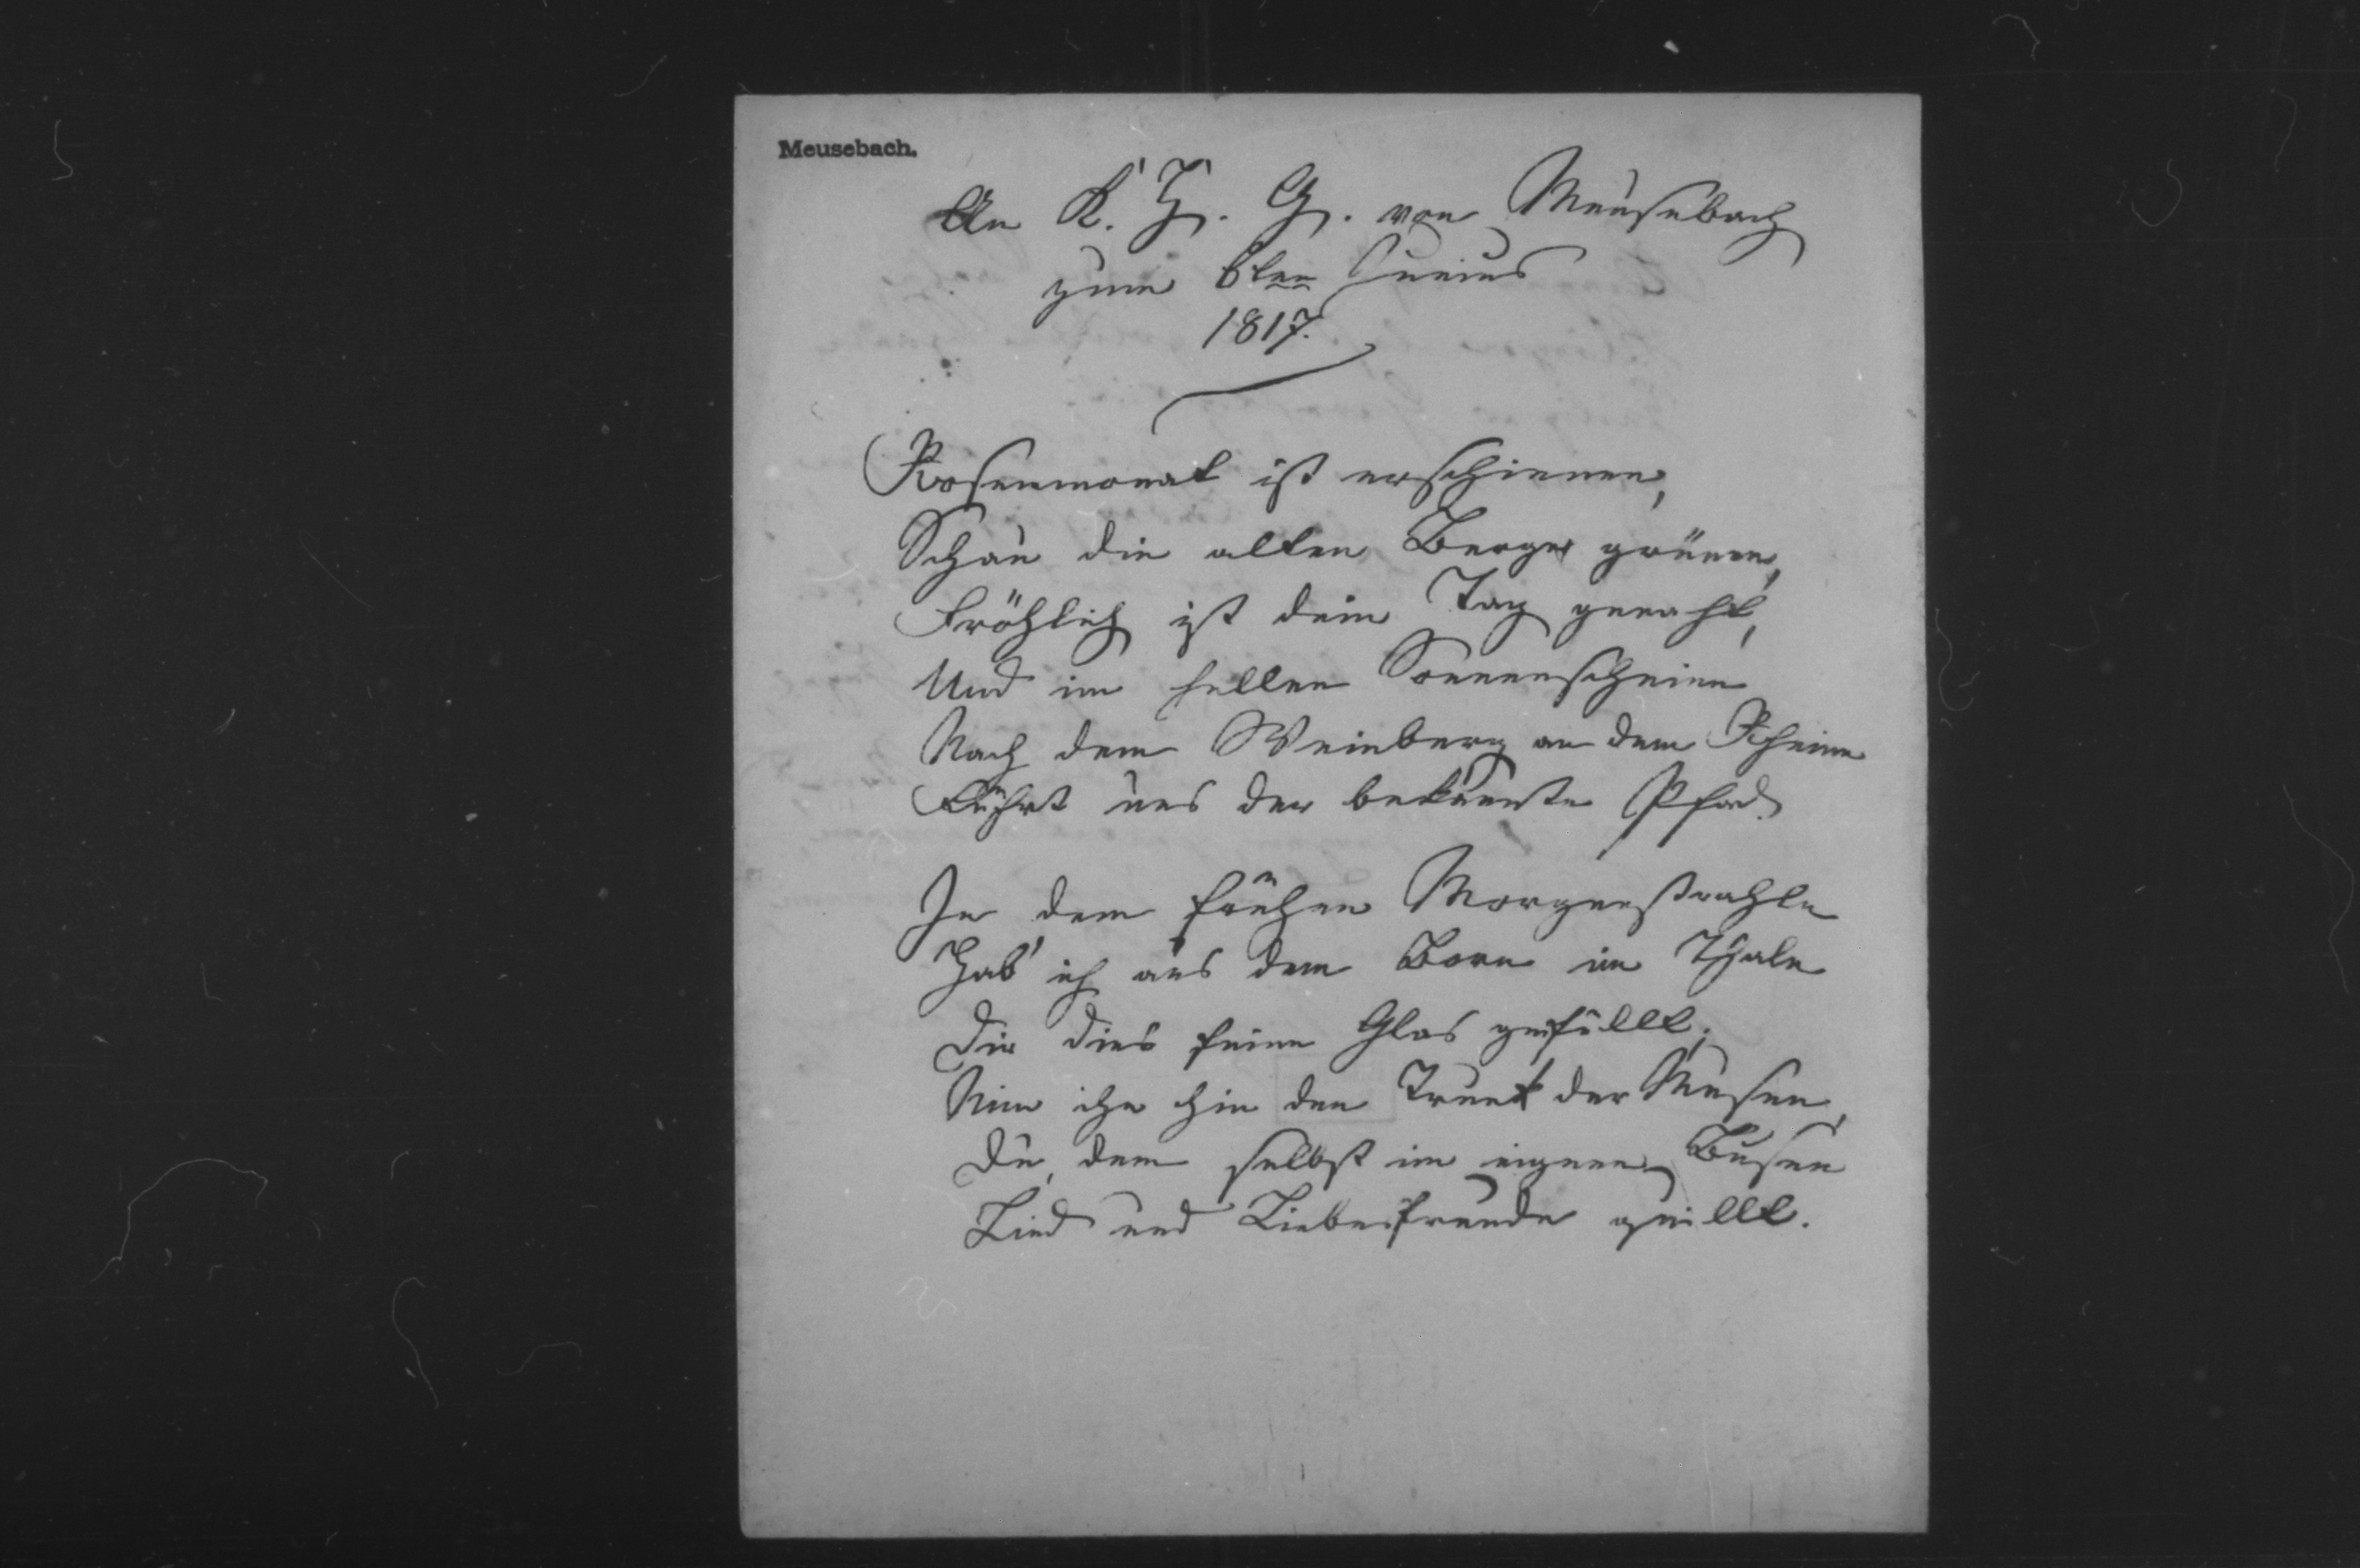 Meusebach.
An K. H. G. von Meusebach
zum 6ten Junius
1817.
Rosenmonat ist erschienen,
Schau die alten Berge grünen,
Fröhlich ist dein Tag genaht,
Und im hellen Sonnenscheine
Nach dem Weinberg an dem Rheine
Führt uns der bekannte Pfad.
In dem frühen Morgenstrahle
Hab' ich aus dem Born im Thale
Dir dies feine Glas gefüllt;
Nim ihn hin den Trunk der Musen,
Du, dem selbst im eignen Busen
Lied und Liebesfreude quillt.